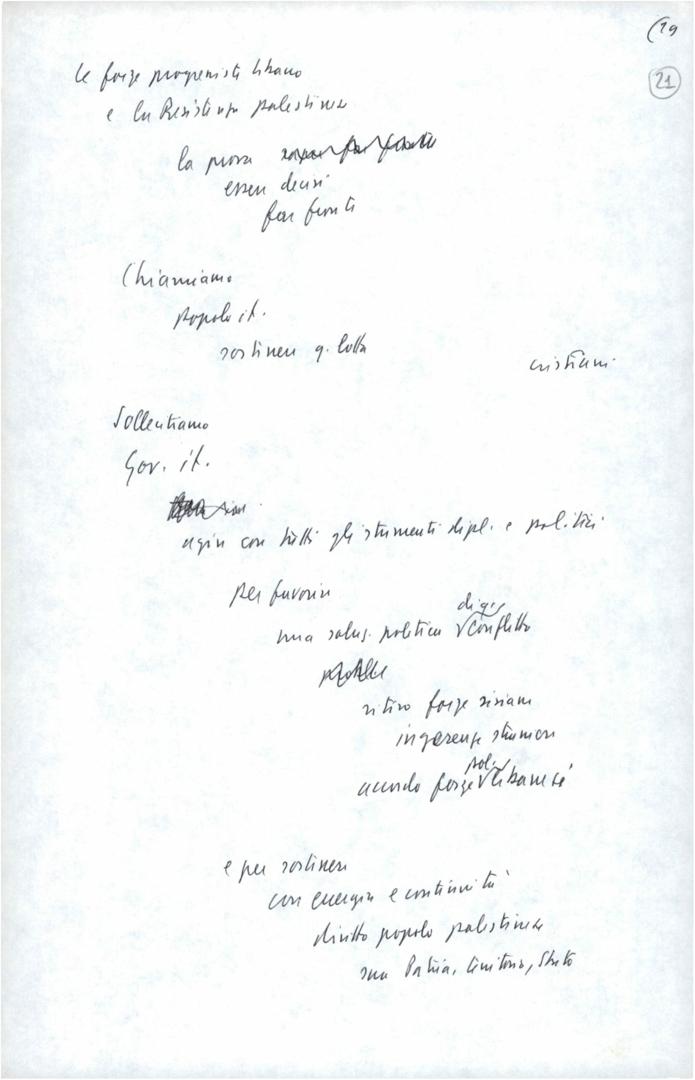 (19
21
le forze progressiste Libano
e la Resistenza palestinese
la prova
essere decisi
far fronte
Chiamiamo
popolo it.
sostenere q. lotta
cristiani
Sollecitiamo
Gov. it.
agire con tutti gli strumenti dipl. e politici
per favorire
di q.
una soluz. politica conflitto
ritiro forze siriane
ingerenze straniere
pol.
accordo forze libanesi
e per sostenere
con energia e continuità
diritto popolo palestinese
sua Patria, territorio, Stato